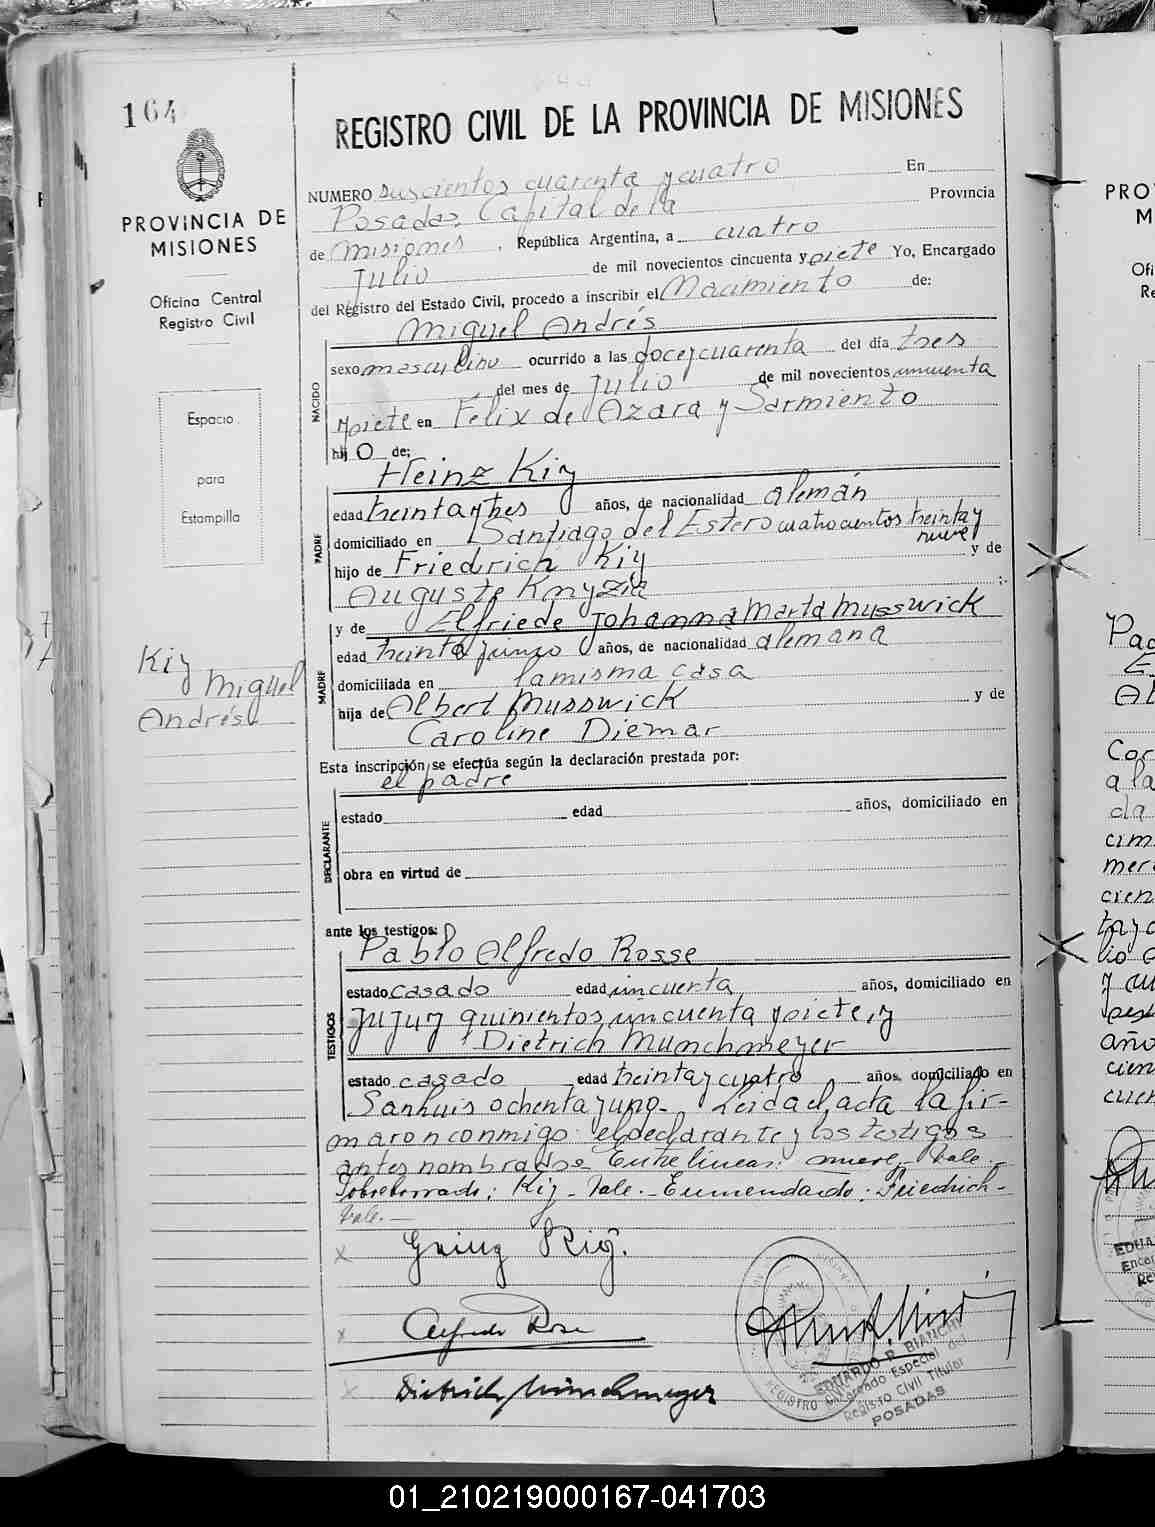 164
PROVINCIA DE
MISIONES
Oficina Central
Registro Civil
Espacio
para
Estampilla
Kiy
Miguel
Andrés.
REGISTRO CIVIL DE LA PROVINCIA DE MISIONES
NUMERO Duscientos cuarenta y cuatro En
Posadas, Capital de la Provincia
de Misiones, República Argentina, a cuatro
Julio de mil novecientos cincuenta y siete Yo, Encargado
del Registro del Estado Civil, procedo a inscribir el Nacimiento de:
Miguel Andrés
NACIDO
sexo masculino ocurrido a las doce y cuarenta del día tres
del mes de Julio de mil novecientos cincuenta
y siete en Félix de Azara y Sarmiento
hijo de:
Heinz Kiy
PADRE
edad treinta y tres años, de nacionalidad alemán
domiciliado en Santiago del Estero cuatrocientos treinta y
nueve
hijo de Friedrich Kiy y de
Auguste Knyzia
MADRE
y de Elfriede Johanna Marta Musswick
edad treinta y cinco años, de nacionalidad alemana
domiciliada en la misma casa
hija de Albert Musswick y de
Caroline Diemar
Esta inscripción se efectúa según la declaración prestada por:
el padre
DECLARANTE
estado edad años, domiciliado en
obra en virtud de
ante los testigos:
Pablo Alfredo Rosse
TESTIGOS
estado casado edad cincuenta años, domiciliado en
Jujuy quinientos cincuenta y siete, y
Dietrich Munchmeyer
estado casado edad treinta y cuatro años, domiciliado en
San Luis ochenta y uno. Leida el acta la fir-
maron conmigo el declarante y los testigos
antes nombrados. Entre lineas: nueve, Vale.-
Sobreborrado: Kiy - Vale. - Enmendado: Friedrich -
Vale. -
x Heinz Kiy.
x Alfredo Rose
x Dietrich Münchmeyer
EDUARDO R. BIANCHI
Encargado Especial del
Registro Civil Titular
POSADAS
REGISTRO CIVIL
PROV
M
Ofi
Re
Pad
Es
Al
Cor
a la
da
cim
mer
cien
ta y c
lio
y cu
año
cien
cuen
EDUA
Encar
Re
01_210219000167-041703